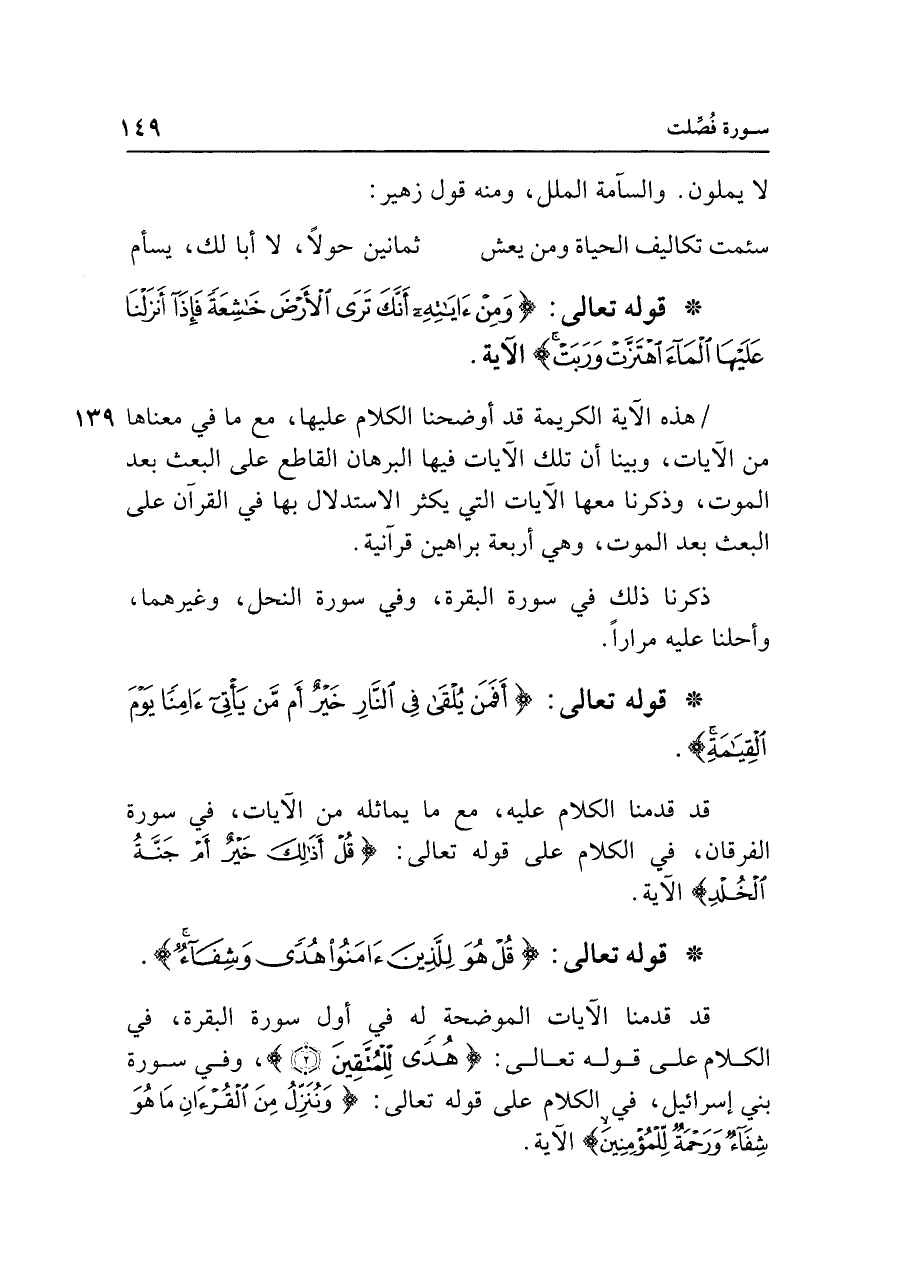 سورة فُصِّلت ١٤٩
لا يملون. والسآمة الملل، ومنه قول زهير:
سئمت تكاليف الحياة ومن يعش ثمانين حولاً، لا أبا لك، يسأم
* قوله تعالى: ﴿وَمِنْ ءَايَٰتِهِۦٓ أَنَّكَ تَرَى ٱلْأَرْضَ خَٰشِعَةً فَإِذَآ أَنزَلْنَا
عَلَيْهَا ٱلْمَآءَ ٱهْتَزَّتْ وَرَبَتْۚ﴾ الآية.
/ هذه الآية الكريمة قد أوضحنا الكلام عليها، مع ما في معناها ١٣٩
من الآيات، وبينا أن تلك الآيات فيها البرهان القاطع على البعث بعد
الموت، وذكرنا معها الآيات التي يكثر الاستدلال بها في القرآن على
البعث بعد الموت، وهي أربعة براهين قرآنية.
ذكرنا ذلك في سورة البقرة، وفي سورة النحل، وغيرهما،
وأحلنا عليه مراراً.
* قوله تعالى: ﴿أَفَمَن يُلْقَىٰ فِى ٱلنَّارِ خَيْرٌ أَم مَّن يَأْتِىٓ ءَامِنًا يَوْمَ
ٱلْقِيَٰمَةِۚ﴾.
قد قدمنا الكلام عليه، مع ما يماثله من الآيات، في سورة
الفرقان، في الكلام على قوله تعالى: ﴿قُلْ أَذَٰلِكَ خَيْرٌ أَمْ جَنَّةُ
ٱلْخُلْدِ﴾ الآية.
* قوله تعالى: ﴿قُلْ هُوَ لِلَّذِينَ ءَامَنُوا۟ هُدًى وَشِفَآءٌۚ﴾.
قد قدمنا الآيات الموضحة له في أول سورة البقرة، في
الكلام على قوله تعالى: ﴿هُدًى لِّلْمُتَّقِينَ ۝٢﴾، وفي سورة
بني إسرائيل، في الكلام على قوله تعالى: ﴿وَنُنَزِّلُ مِنَ ٱلْقُرْءَانِ مَا هُوَ
شِفَآءٌ وَرَحْمَةٌ لِّلْمُؤْمِنِينَۙ﴾ الآية.